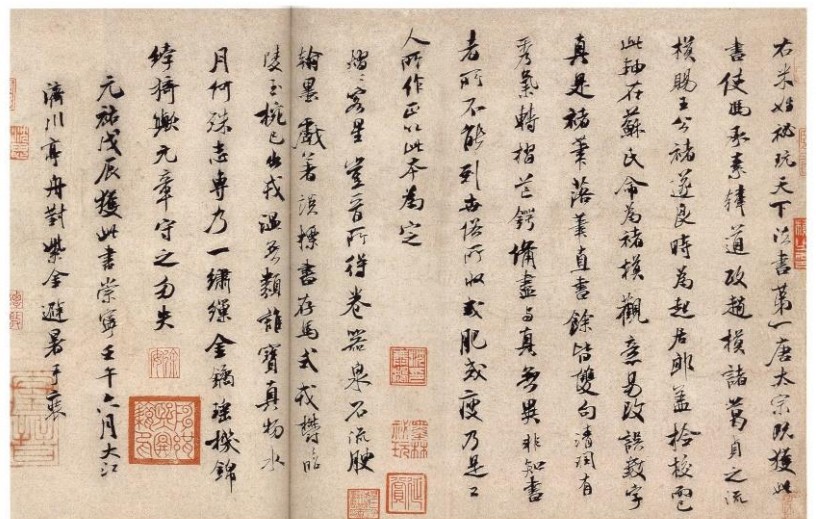 右米姓秘玩天下法書第一唐太宗既獲此
書使馮承素韓道政趙模諸葛貞之流
模賜王公褚遂良時為起居郎蓋撿校而已
此軸在蘇氏命為褚模觀意易改誤數字
真是褚筆落筆直書餘皆雙勾清潤有
秀氣轉摺芒鍔備盡與真無異非知書
者所不能到世俗所收或肥或瘦乃是工
人所作正以此本為定
熠熠客星豈晉所得養器泉石流腴
翰墨戲著談標書存焉式鬱鬱昭
陵玉椀已出戎溫無類誰寶真物水
月何殊志專乃一繡繅金鐍瑤機錦
綷猗歟元章守之勿失
元祐戊辰獲此書崇寧壬午六月大江
濟川亭舟對紫金避暑手裝